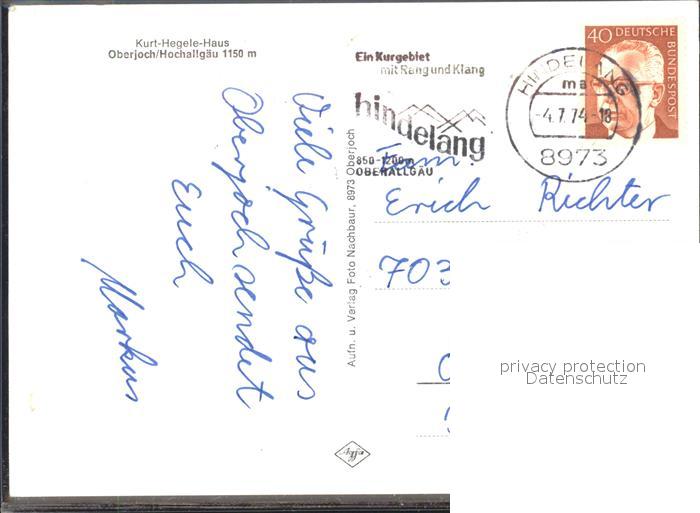 Kurt-Hegele-Haus
Oberjoch/Hochallgäu 1150 m
Viele Grüße aus
Oberjoch sendet
Euch
Markus
Aufn. u. Verlag Foto Nachbaur, 8973 Oberjoch
Ein Kurgebiet
mit Rang und Klang
hindelang
850-1200m
OBERALLGÄU
HINDELANG
ma
-4.7.74-18
8973
40 DEUTSCHE
BUNDESPOST
Fam.
Erich Richter
703
privacy protection
Datenschutz